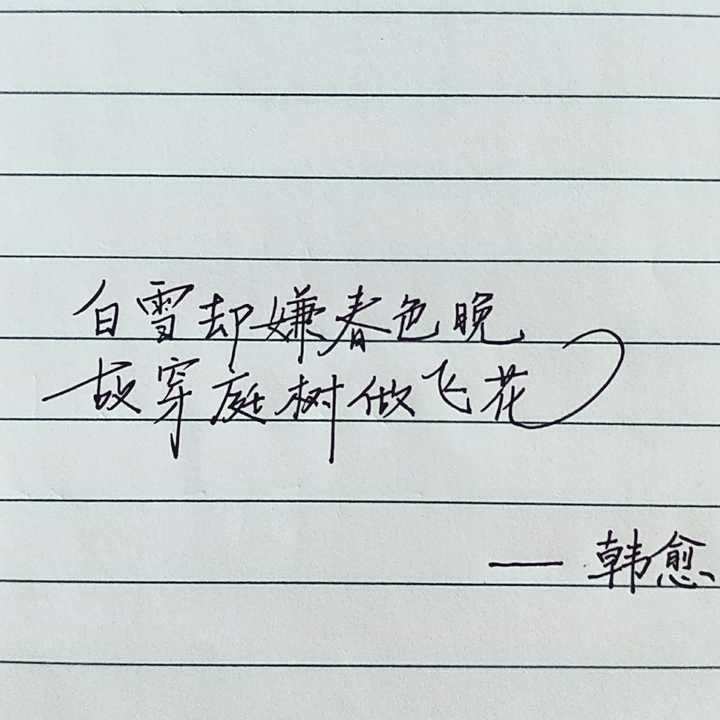 白雪却嫌春色晚
故穿庭树做飞花
——韩愈